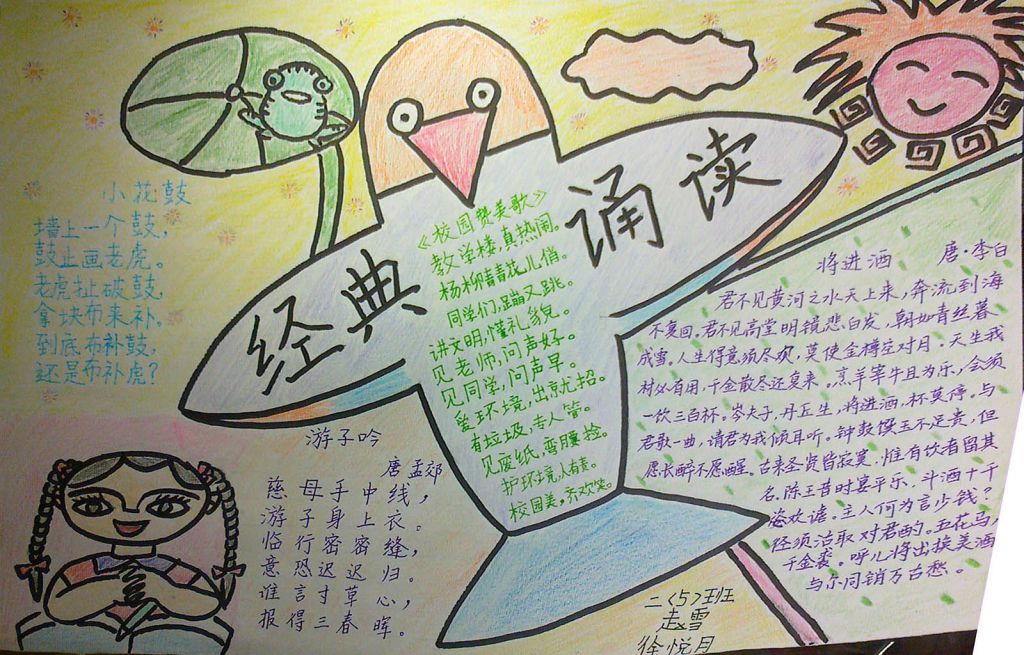 经典诵读
小花鼓
墙上一个鼓，
鼓上画老虎。
老虎扯破鼓，
拿块布来补。
到底布补鼓，
还是布补虎？
《校园赞美歌》
教学楼，真热闹。
杨柳青青花儿俏。
同学们，蹦又跳。
讲文明，懂礼貌。
见老师，问声好。
见同学，问声早。
爱环境，出新招。
有垃圾，专人管。
见废纸，弯腰捡。
护环境，人有责。
校园美，齐欢笑。
游子吟
唐 孟郊
慈母手中线，
游子身上衣。
临行密密缝，
意恐迟迟归。
谁言寸草心，
报得三春晖。
将进酒 唐·李白
君不见黄河之水天上来，奔流到海
不复回，君不见高堂明镜悲白发，朝如青丝暮
成雪。人生得意须尽欢，莫使金樽空对月。天生我
材必有用，千金散尽还复来。烹羊宰牛且为乐，会须
一饮三百杯。岑夫子，丹丘生，将进酒，杯莫停。与
君歌一曲，请君为我倾耳听。钟鼓馔玉不足贵，但
愿长醉不愿醒。古来圣贤皆寂寞，惟有饮者留其
名。陈王昔时宴平乐，斗酒十千
恣欢谑。主人何为言少钱？
径须沽取对君酌。五花马，
千金裘。呼儿将出换美酒
与尔同销万古愁。
二〈5〉班
赵雪
徐悦月